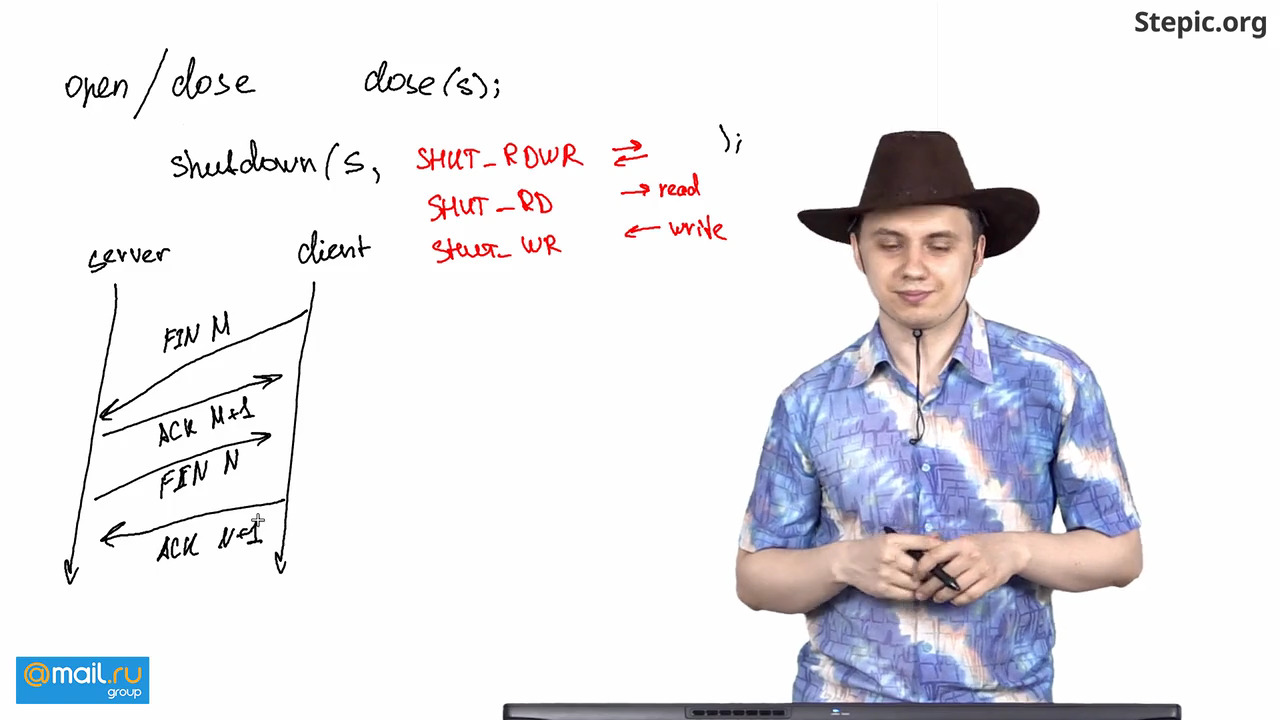 Stepic.org
open/close close(s);
shutdown(s, SHUT_RDWR );
SHUT_RD → read
SHUT_WR ← write
server client
FIN M
ACK M+1
FIN N
ACK N+1
@mail.ru
group